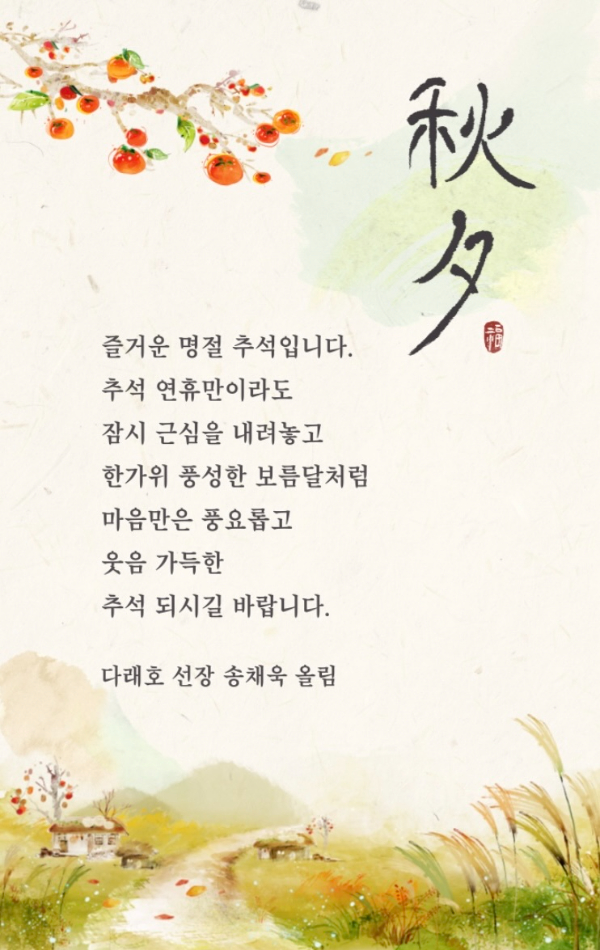 秋夕
福
즐거운 명절 추석입니다.
추석 연휴만이라도
잠시 근심을 내려놓고
한가위 풍성한 보름달처럼
마음만은 풍요롭고
웃음 가득한
추석 되시길 바랍니다.
다래호 선장 송채욱 올림